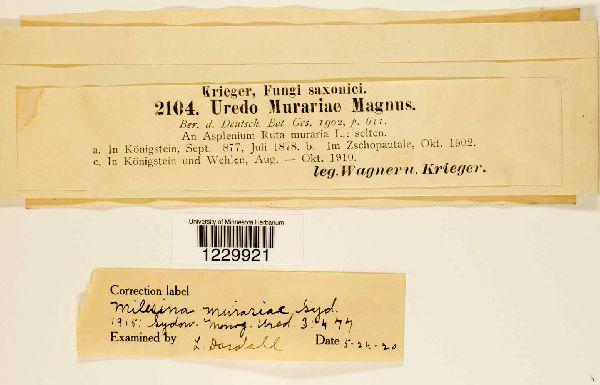 Krieger, Fungi saxonici.
2104. Uredo Murariae Magnus.
Ber. d. Deutsch. Bot Ges. 1902, p. 611.
An Asplenium Ruta muraria L.; selten.
a. In Königstein, Sept. 877, Juli 1878. b. Im Zschopautale, Okt. 1902.
c. In Königstein und Wehlen, Aug. — Okt. 1910.
leg. Wagner u. Krieger.
University of Minnesota Herbarium
1229921
Correction label
Milesina murariae Syd.
1915: Sydow. Monog. Ured. 3: 477
Examined by L. Dosdall Date 5-24-20